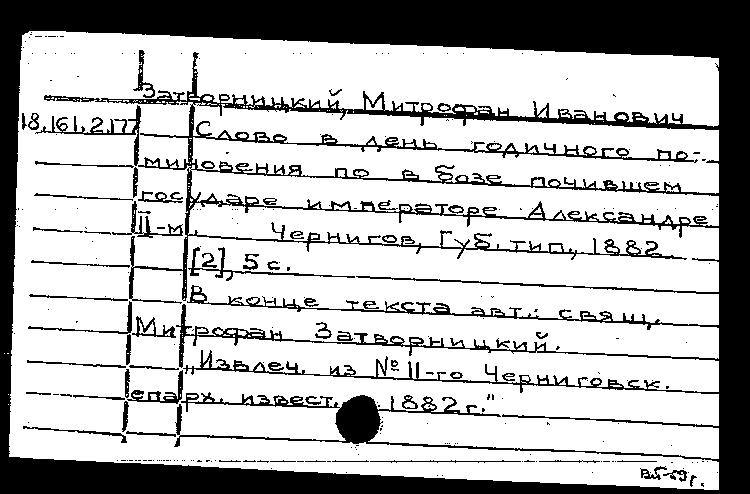 Затворницкий, Митрофан Иванович
18.161.2.177 Слово в день годичного по-
миновения по в бозе почившем
государе императоре Александре
II-м. Чернигов, Губ. тип., 1882
[2], 5 с.
В конце текста авт.: свящ.
Митрофан Затворницкий.
„Извлеч. из № 11-го Черниговск.
епарх. извест. 1882 г."